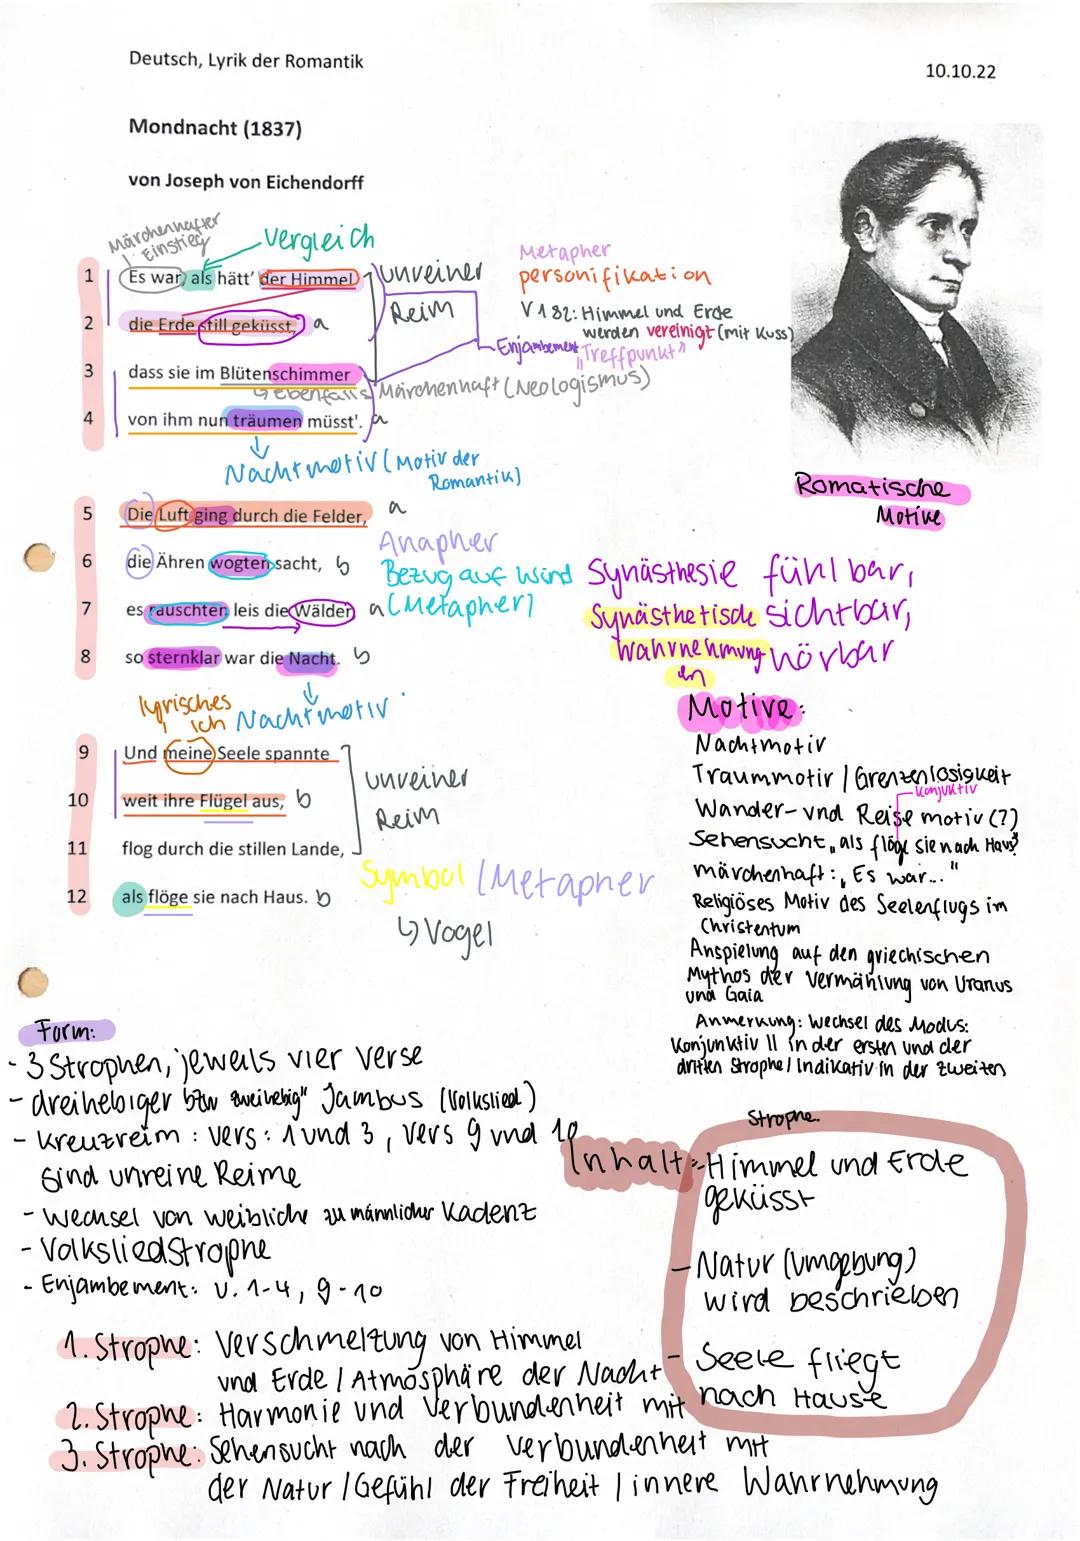 Deutsch, Lyrik der Romantik
10.10.22
Mondnacht (1837)
von Joseph von Eichendorff
Märchenhafter
Einstieg
Vergleich
1 Es war, als hätt' der Himmel
unreiner
Reim
2 die Erde still geküsst, a
3 dass sie im Blütenschimmer
↳ ebenfalls Märchenhaft (Neologismus)
4 von ihm nun träumen müsst'. a
Metapher
personifikation
V 1&2: Himmel und Erde
werden vereinigt (mit Kuss)
Enjambement "Treffpunkt"
Nachtmotiv (Motiv der
Romantik)
Romatische
Motive
5 Die Luft ging durch die Felder, a
Anapher
6 die Ähren wogten sacht, b
Bezug auf Wind
(Metapher)
7 es rauschten leis die Wälder a
8 so sternklar war die Nacht. b
Synästhesie fühlbar,
Synästhetisch sichtbar,
Wahrnehmung hörbar
en
lyrisches
ich
Nachtmotiv
9 Und meine Seele spannte
10 weit ihre Flügel aus, b
unreiner
Reim
11 flog durch die stillen Lande,
12 als flöge sie nach Haus. b
Symbol / Metapher
↳ Vogel
Motive:
Nachtmotiv
Traummotiv / Grenzenlosigkeit
Konjuktiv
Wander- und Reise motiv (?)
Sehensucht „als flöge sie nach Haus"
märchenhaft: „Es war..."
Religiöses Motiv des Seelenflugs im
Christentum
Anspielung auf den griechischen
Mythos der Vermählung von Uranus
und Gaia
Anmerkung: Wechsel des Modus:
Konjunktiv II in der ersten und der
dritten Strophe / Indikativ in der zweiten
Strophe.
Form:
- 3 Strophen, jeweils vier Verse
- dreihebiger bzw zweihebig" Jambus (Volkslied)
- Kreuzreim : Vers: 1 und 3, Vers 9 und 10
sind unreine Reime
- Wechsel von weibliche zu männlicher Kadenz
- Volksliedstrophe
- Enjambement: v. 1-4, 9-10
Inhalt:
- Himmel und Erde
geküsst
- Natur (Umgebung)
wird beschrieben
- Seele fliegt
nach Hause
1. Strophe: Verschmelzung von Himmel
und Erde / Atmosphäre der Nacht
2. Strophe: Harmonie und Verbundenheit mit
3. Strophe: Sehensucht nach der Verbundenheit mit
der Natur / Gefühl der Freiheit / innere Wahrnehmung